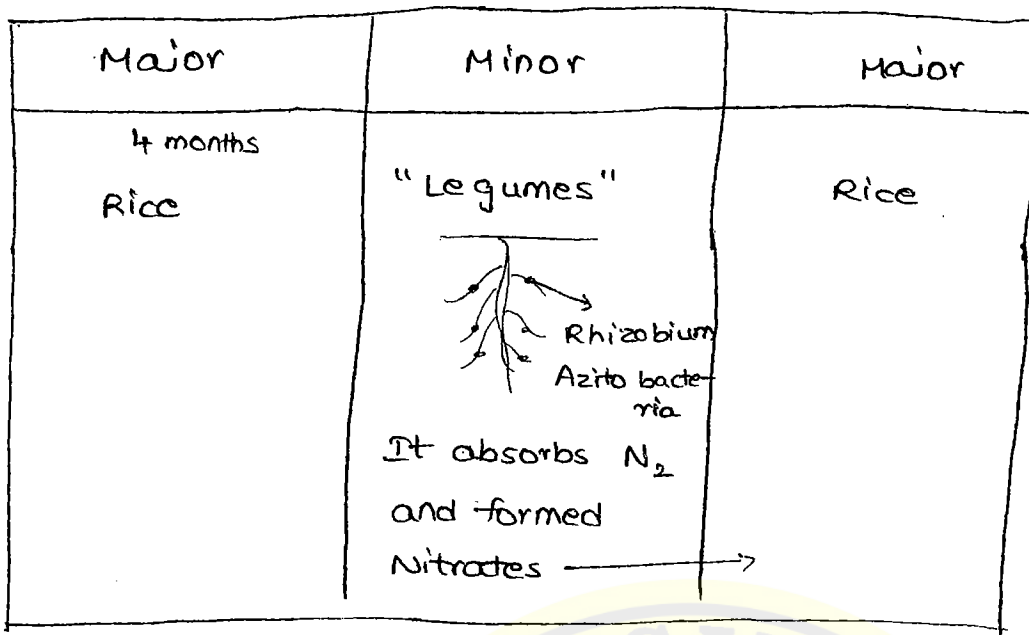 Major
Minor
Major
4 months
Rice
"Legumes"
Rice
Rhizobium
Azito bacte-
ria
It absorbs N₂
and formed
Nitrates